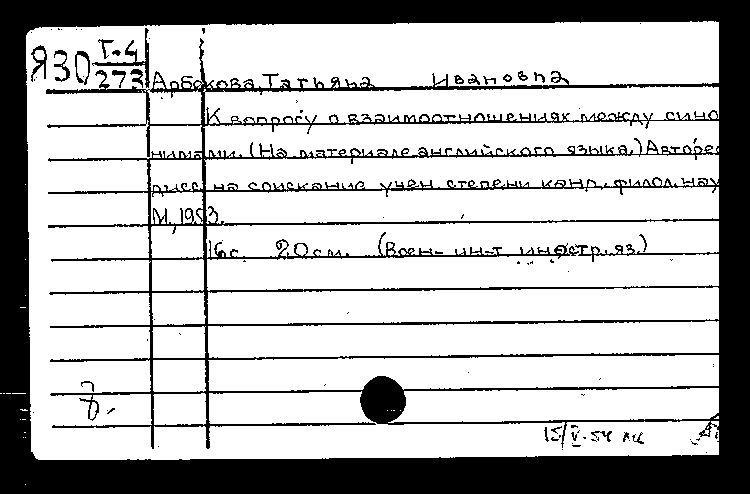 Я30 Г-4
273
Арбекова, Татьяна Ивановна
К вопросу о взаимоотношениях между сино
нимами. (На материале английского языка.) Авторе
дисс. на соискание учен. степени канд. филол. нау
М., 1953.
16 с. 20 см. (Воен- ин-т иностр. яз.)
15/V-54